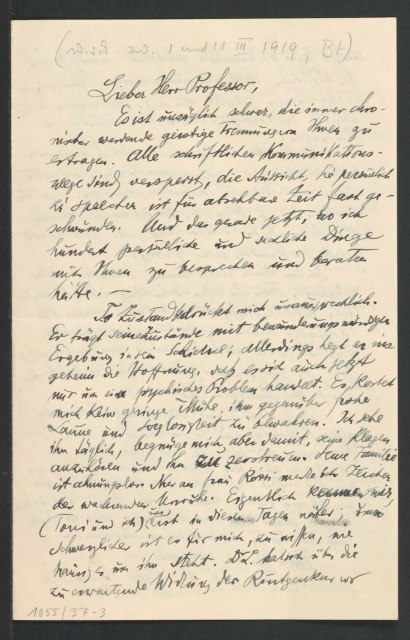 (w.sch. zw. 1 und 18 III 1919, Bf)
Lieber Herr Professor,
Es ist unsäglich schwer, die immer chro-
nischer werdende geistige Trennung von Ihnen zu
ertragen. Alle schriftlichen Kommunikations-
wege sind versperrt, die Aussicht, Sie persönlich
zu sprechen ist für absehbare Zeit fast ge-
schwunden. Und das gerade jetzt, wo ich
hundert persönliche und sachliche Dinge
mit Ihnen zu besprechen und beraten
hätte. —
Zustand bedrückt mich unaussprechlich.
Er trägt seine Zustände mit bewunderungswürdiger
Ergebung in sein Schicksal; allerdings hegt er ins-
geheim die Hoffnung, daß es sich auch jetzt
nur um ein psychisches Problem handelt. Es kostet
mich keine geringe Mühe, ihm gegenüber frohe
Laune und Sorglosigkeit zu bewahren. Ich sehe
ihn täglich, begnüge mich aber damit, seine Klagen
anzuhören und ihn zu zerstreuen. Seine Familie
ist ahnungslos. Nur an Frau merke ich Zeichen
der wachsenden Unruhe. Eigentlich kommen wir,
(Toni und ich) uns erst in diesen Tagen näher; umso
schmerzlicher ist es für mich, zu wissen, wie
um ihn steht. Dr. L. hatte über die
zu erwartende Wirkung der Röntgenkur vor
1055/37-3